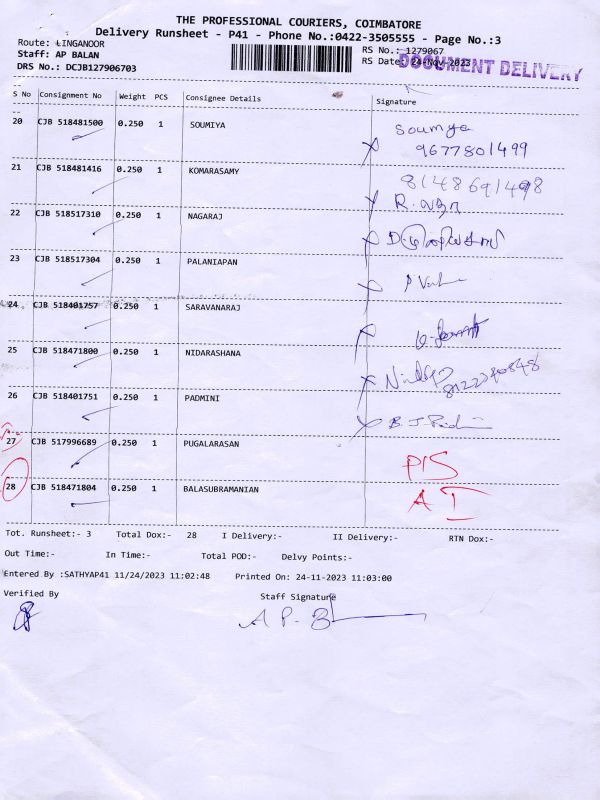 THE PROFESSIONAL COURIERS, COIMBATORE
Delivery Runsheet - P41 - Phone No.:0422-3505555 - Page No.:3
Route: LINGANOOR RS No.: 1279067
Staff: AP BALAN RS Date: 24-Nov-2023 DOCUMENT DELIVERY
DRS No.: DCJB127906703
S No Consignment No Weight PCS Consignee Details Signature
20 CJB 518481500 0.250 1 SOUMIYA Soumya
9677801499
21 CJB 518481416 0.250 1 KOMARASAMY 8148691498
R.
22 CJB 518517310 0.250 1 NAGARAJ
23 CJB 518517304 0.250 1 PALANIAPAN
24 CJB 518401757 0.250 1 SARAVANARAJ
25 CJB 518471800 0.250 1 NIDARASHANA
26 CJB 518401751 0.250 1 PADMINI B. J.
27 CJB 517996689 0.250 1 PUGALARASAN P/S
28 CJB 518471804 0.250 1 BALASUBRAMANIAN A I
Tot. Runsheet:- 3 Total Dox:- 28 I Delivery:- II Delivery:- RTN Dox:-
Out Time:- In Time:- Total POD:- Delvy Points:-
Entered By :SATHYAP41 11/24/2023 11:02:48 Printed On: 24-11-2023 11:03:00
Verified By Staff Signature
A P. B